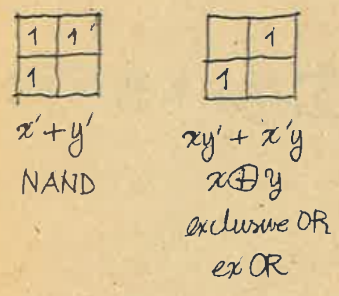 1 1
1
x′ + y′
NAND
1
1
xy′ + x′y
x⊕y
exclusive OR
ex OR